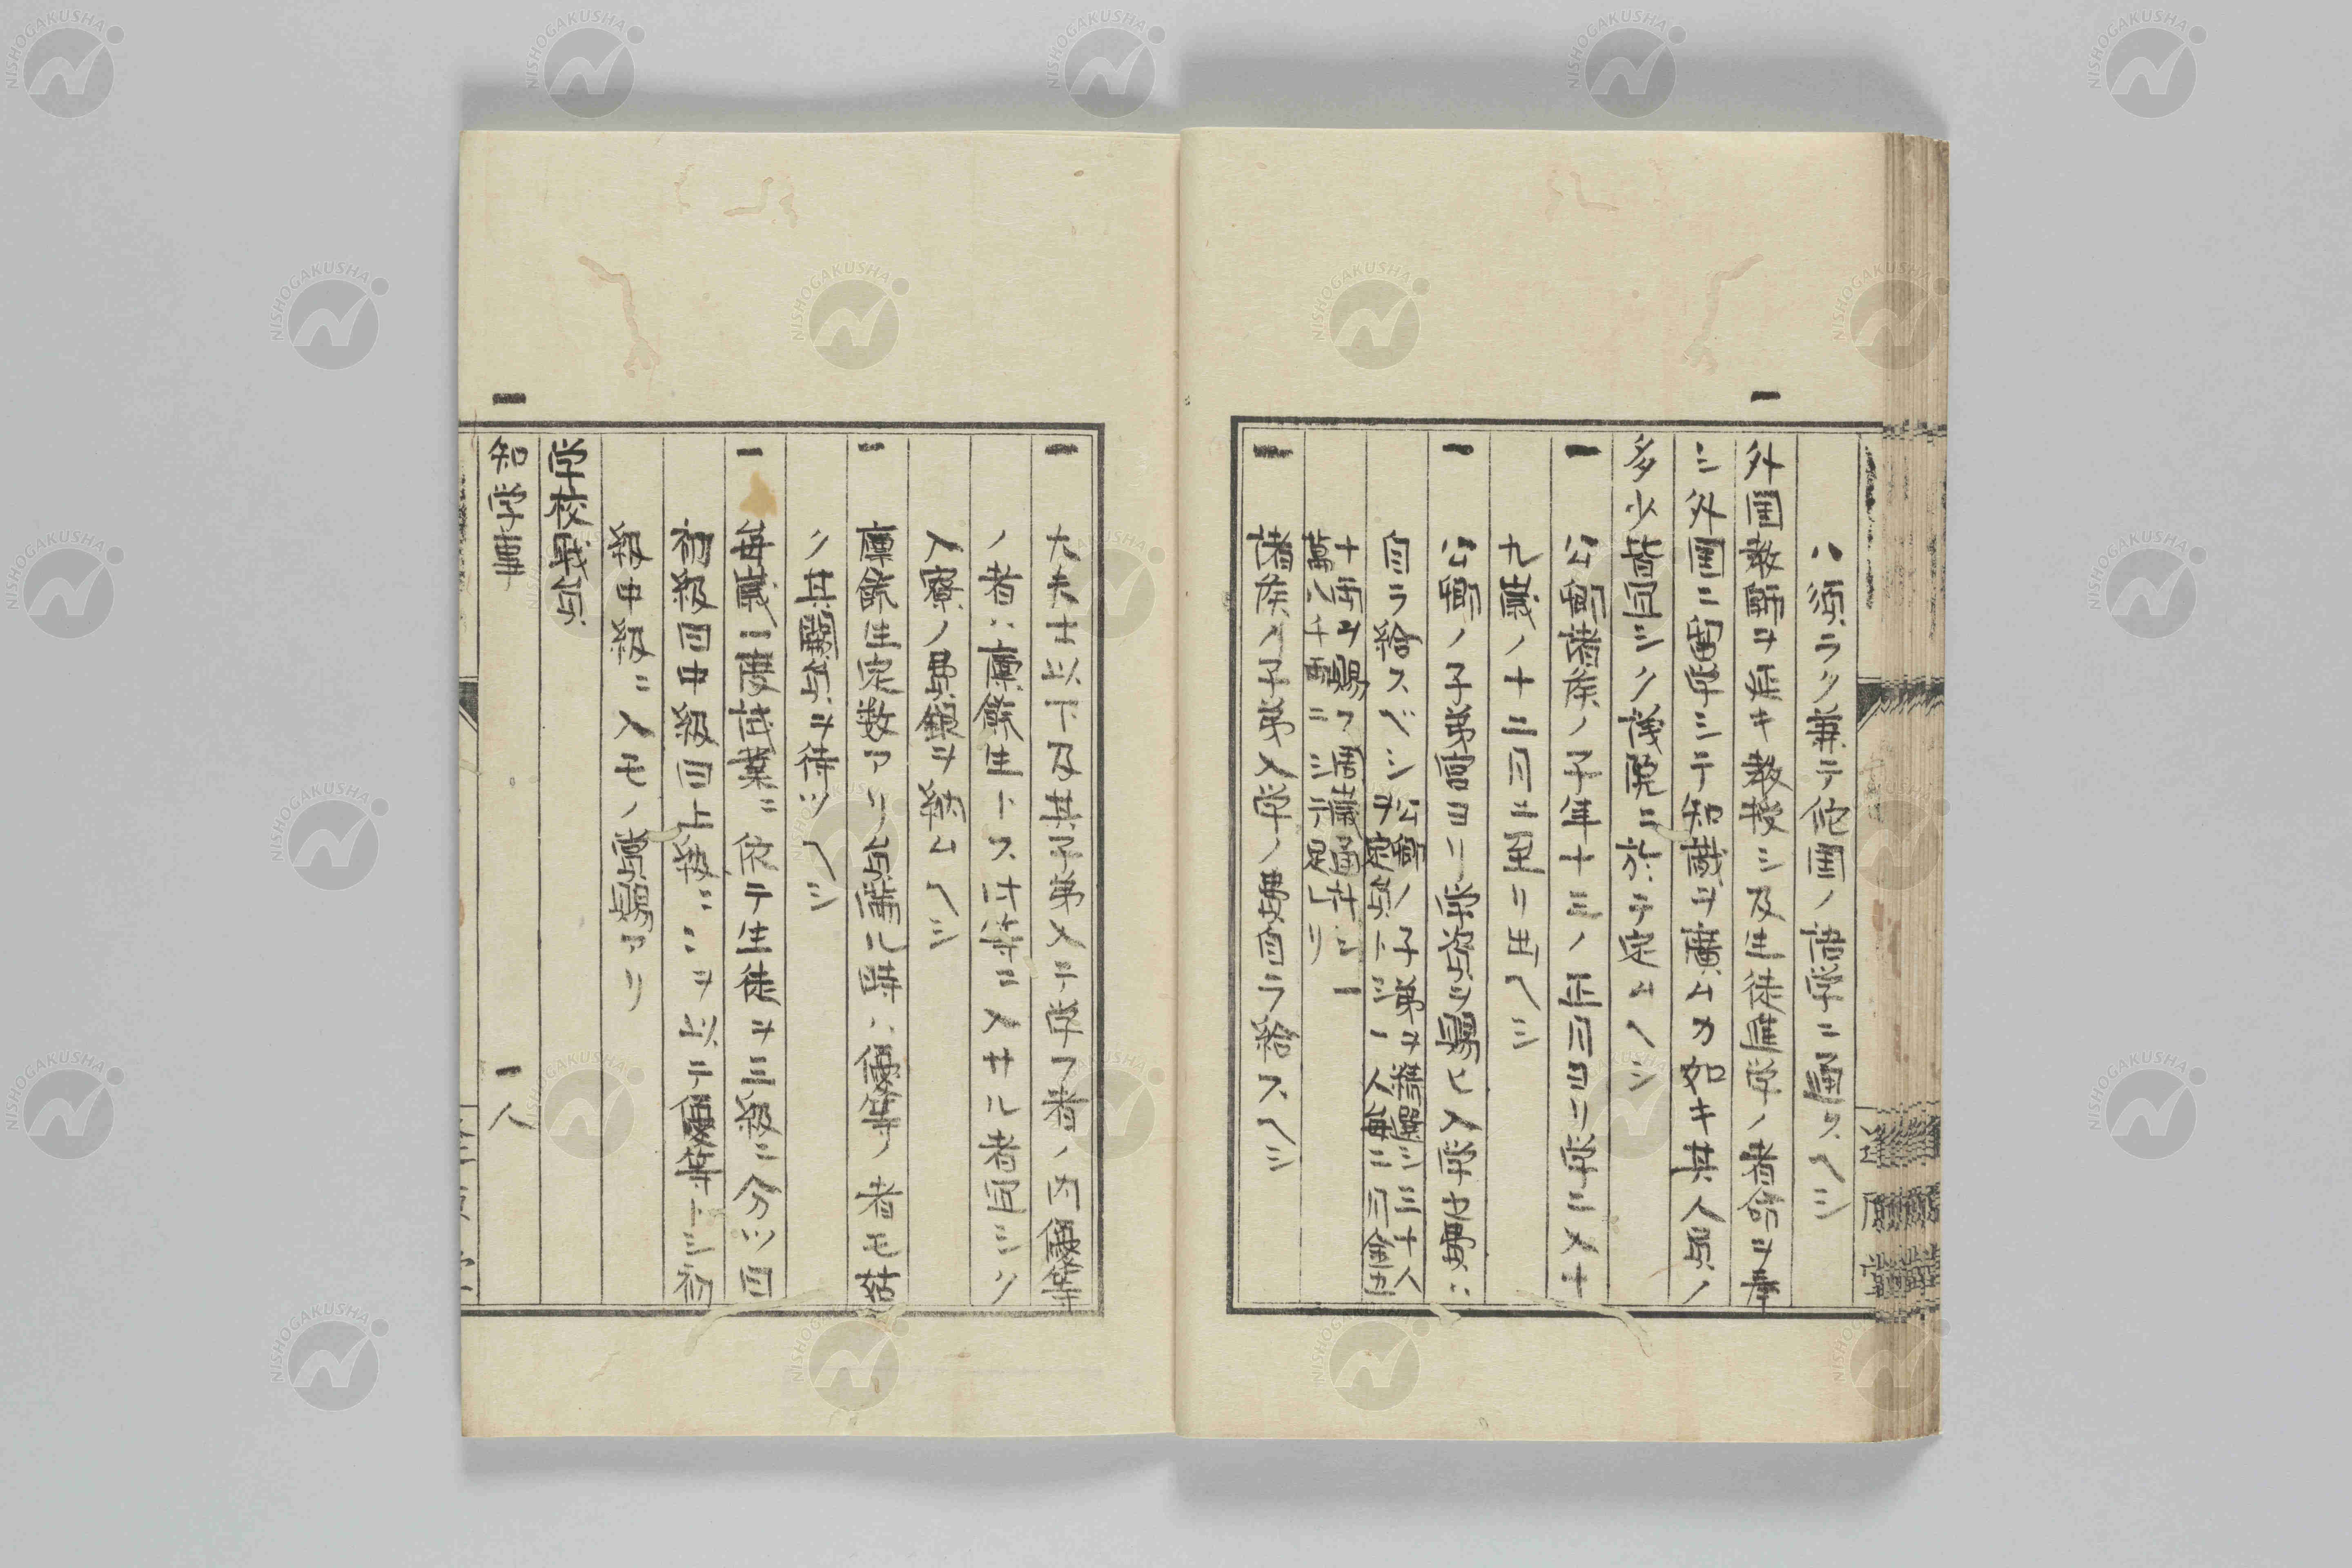 ハ須ラク兼テ佗国ノ語学ニ通スヘシ
一
外国教師ヲ延キ教授シ及生徒進学ノ者命ヲ奉
シ外国ニ留学シテ知識ヲ廣ムカ如キ其人員ノ
多少皆宜シク議院ニ於テ定ムヘシ
一 公卿諸侯ノ子年十三ノ正月ヨリ学ニ入十
九歳ノ十二月ニ至リ出ヘシ
一 公卿ノ子弟官ヨリ学資ヲ賜ヒ入学ノ費ハ
自ラ給スベシ
公卿ノ子弟ヲ精選シ三十人
ヲ定員トシ一人毎ニ月金廿
十両ヲ賜フ周歳通計シ一
萬八千両ニシテ足レリ
一 諸侯ノ子弟入学ノ費自ラ給スヘシ
一 大夫士以下及其子弟入テ学フ者ノ内優等
ノ者ハ廩餼生トス此等ニ入サル者宜シク
入寮ノ費銀ヲ納ムヘシ
一 廩餼生定数アリ員満ル時ハ優等ノ者モ姑
ク其闕員ヲ待ツヘシ
一 毎歳二度試業ニ依テ生徒ヲ三級ニ分ツ曰
初級曰中級曰上級
級中級ニ入モノ賞賜アリ
学校職員
一
知学事 一人